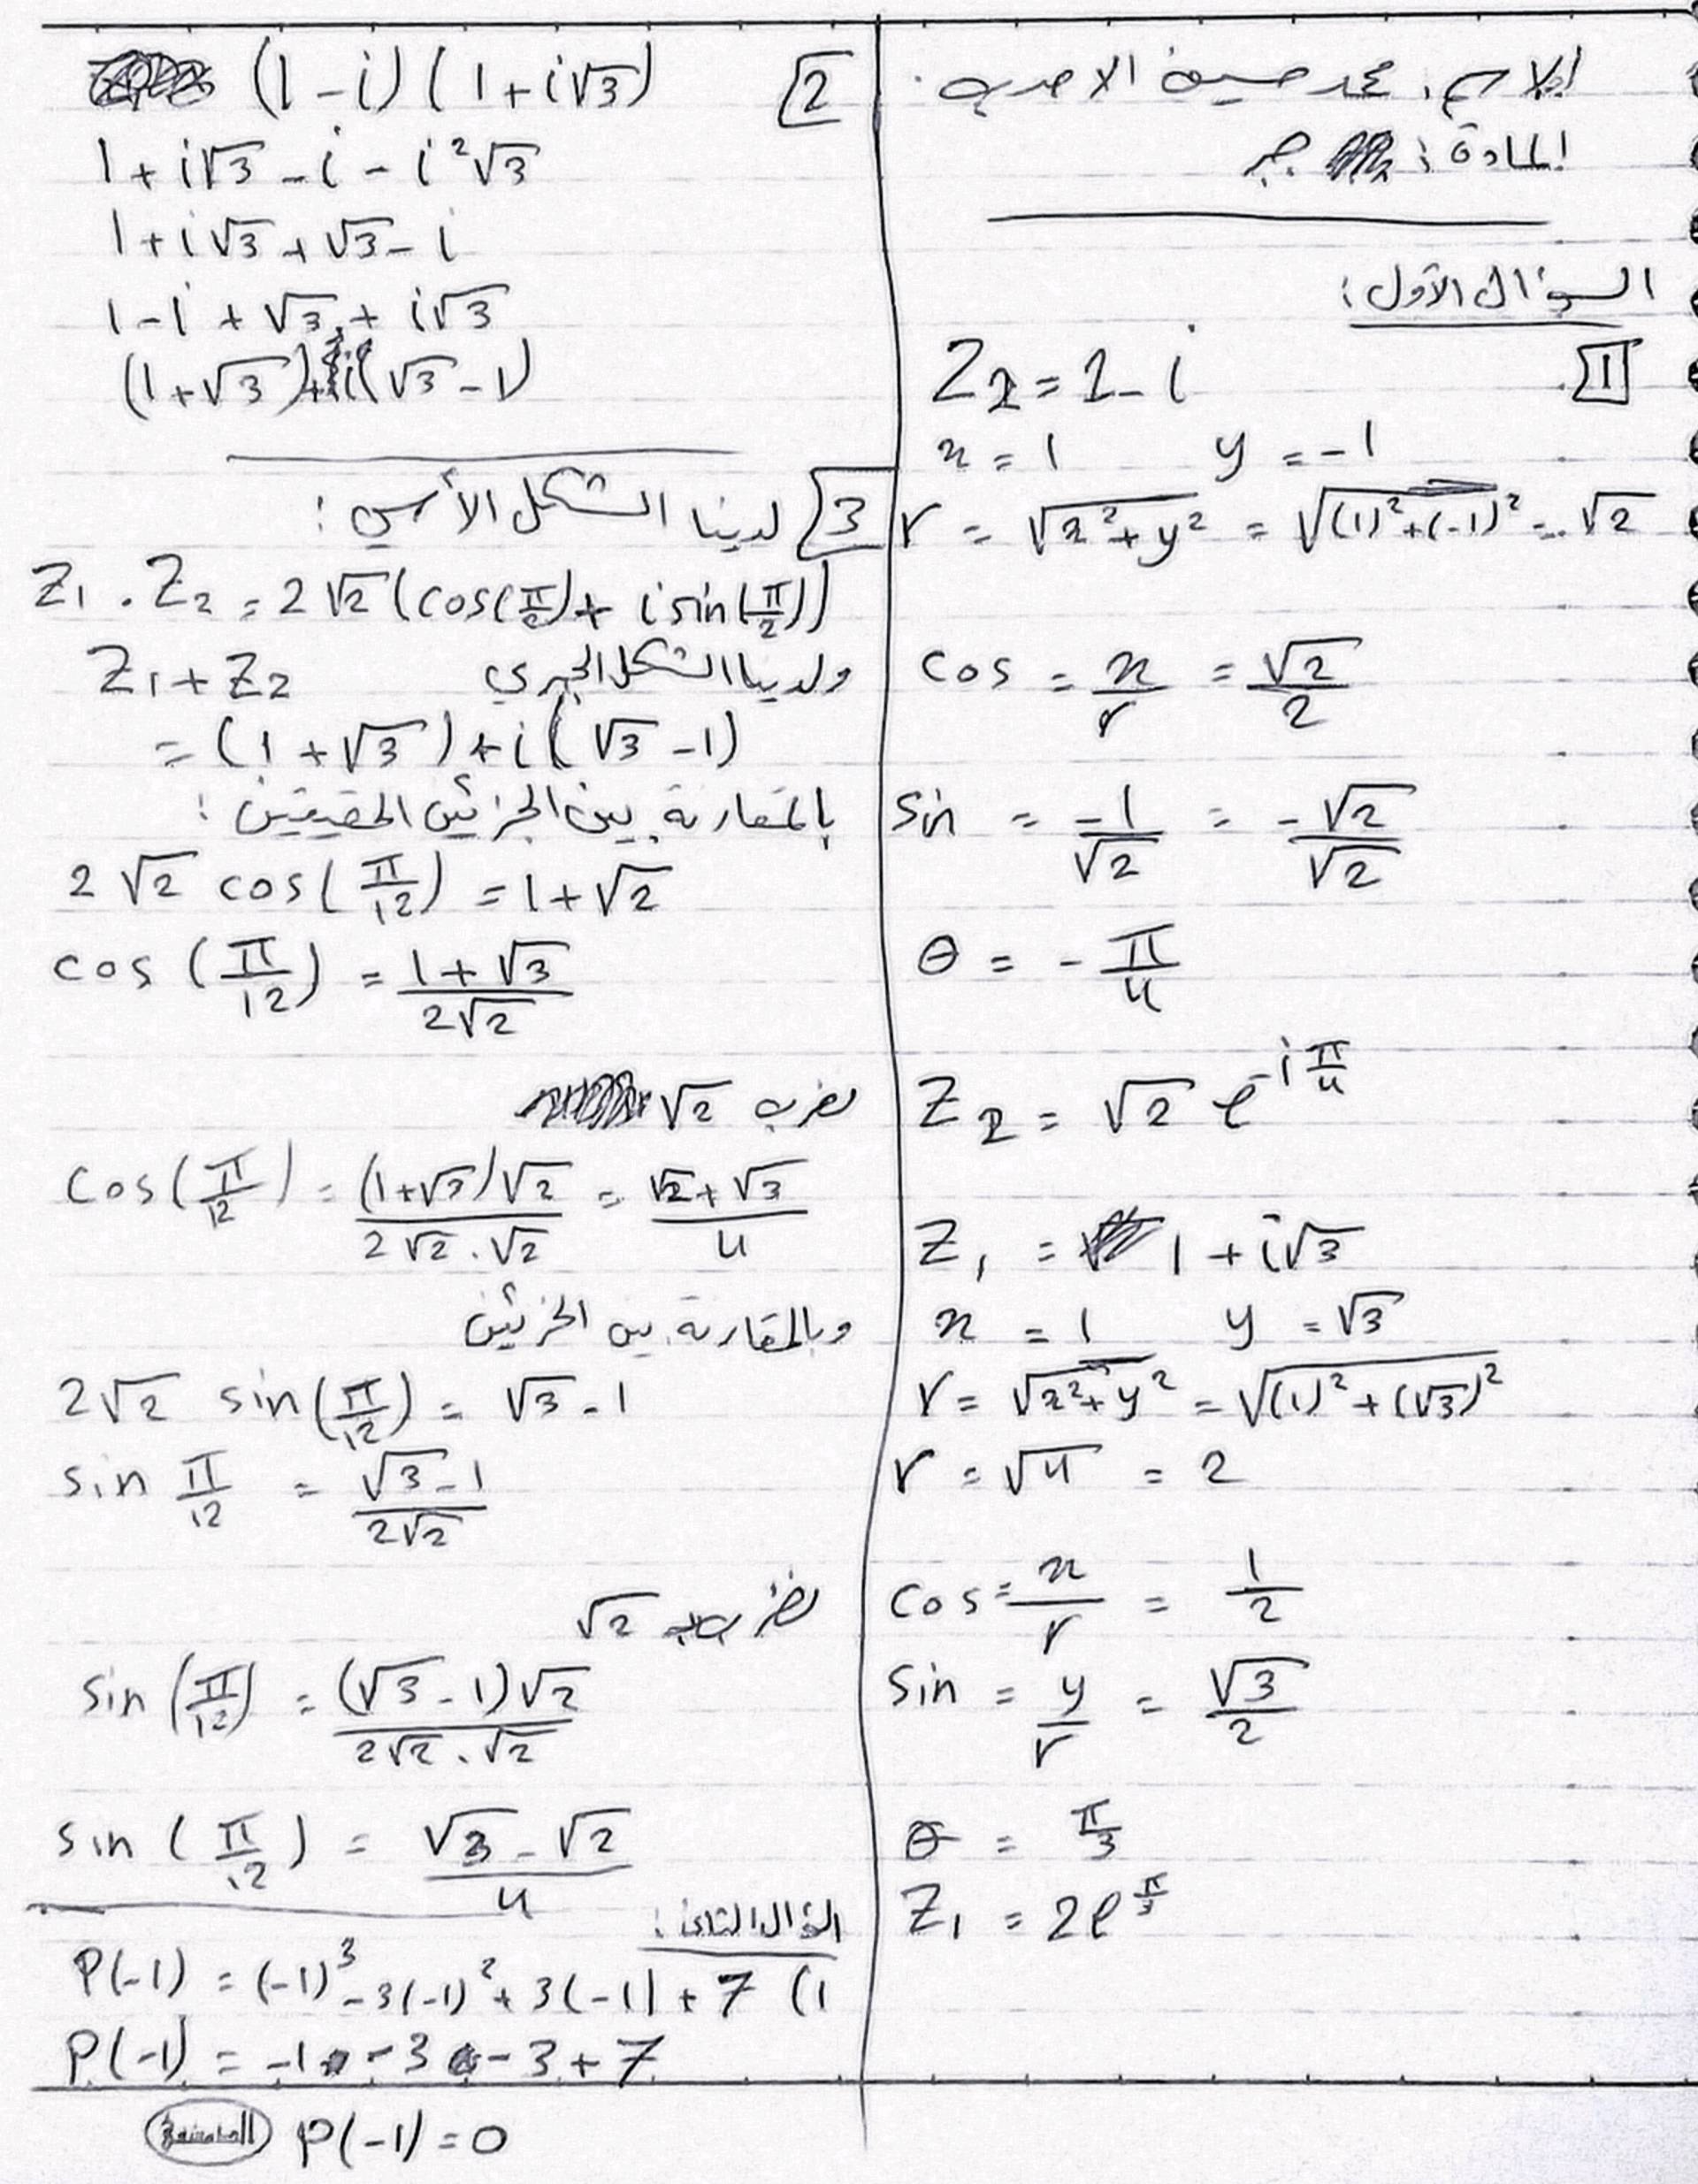 الاسم: محمد حسين الاحمد
المادة: جبر
السؤال الأول:
1
Z2 = 1 - i
x = 1    y = -1
r = √x²+y² = √(1)²+(-1)² = √2
cos = x/r = √2/2
sin = -1/√2 = -√2/√2
θ = -π/4
Z2 = √2 e^-iπ/4
Z1 = 1 + i√3
x = 1    y = √3
r = √x²+y² = √(1)²+(√3)²
r = √4 = 2
cos = x/r = 1/2
sin = y/r = √3/2
θ = π/3
Z1 = 2e^π/3
2 (1-i)(1+i√3)
1+i√3-i-i²√3
1+i√3+√3-i
1-i+√3+i√3
(1+√3)+i(√3-1)
3 لدينا الشكل الأسي:
Z1 . Z2 = 2√2(cos(π/2)+ i sin(π/2))
ولدينا الشكل الجبري Z1+Z2
= (1+√3)+i(√3-1)
بالمقارنة بين الجزئين الحقيقين:
2√2 cos(π/12) = 1+√2
cos(π/12) = 1+√3/2√2
نضرب √2
cos(π/12) = (1+√3)√2/2√2.√2 = √2+√3/4
وبالمقارنة بين الجزئين
2√2 sin(π/12) = √3-1
sin π/12 = √3-1/2√2
نضرب ب √2
sin(π/12) = (√3-1)√2/2√2.√2
sin(π/12) = √3-√2/4
السؤال الثاني:
1) P(-1) = (-1)³-3(-1)²+3(-1)+7
P(-1) = -1-3-3+7
P(-1) = 0